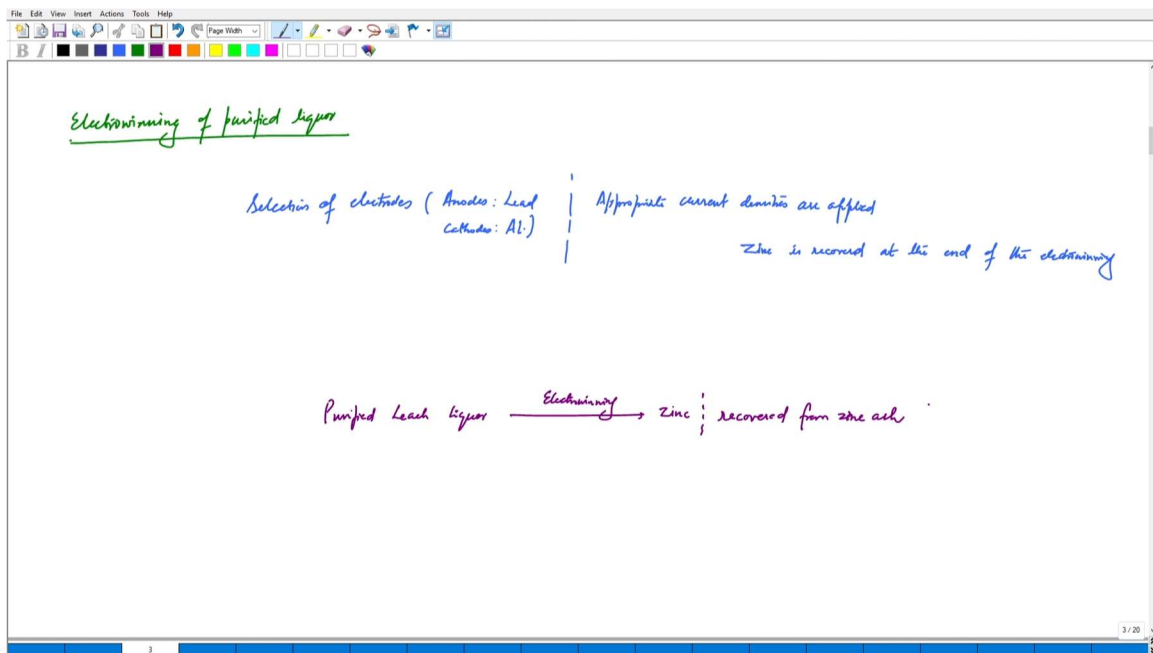 File Edit View Insert Actions Tools Help
Page Width
B I
Electrowinning of purified liquor
Selection of electrodes ( Anodes : Lead
Cathodes : Al. )
Appropriate current densities are applied
Zinc is recovered at the end of the electrowinning
Purified Leach liquor Electrowinning Zinc recovered from zinc ash
3 / 20
3